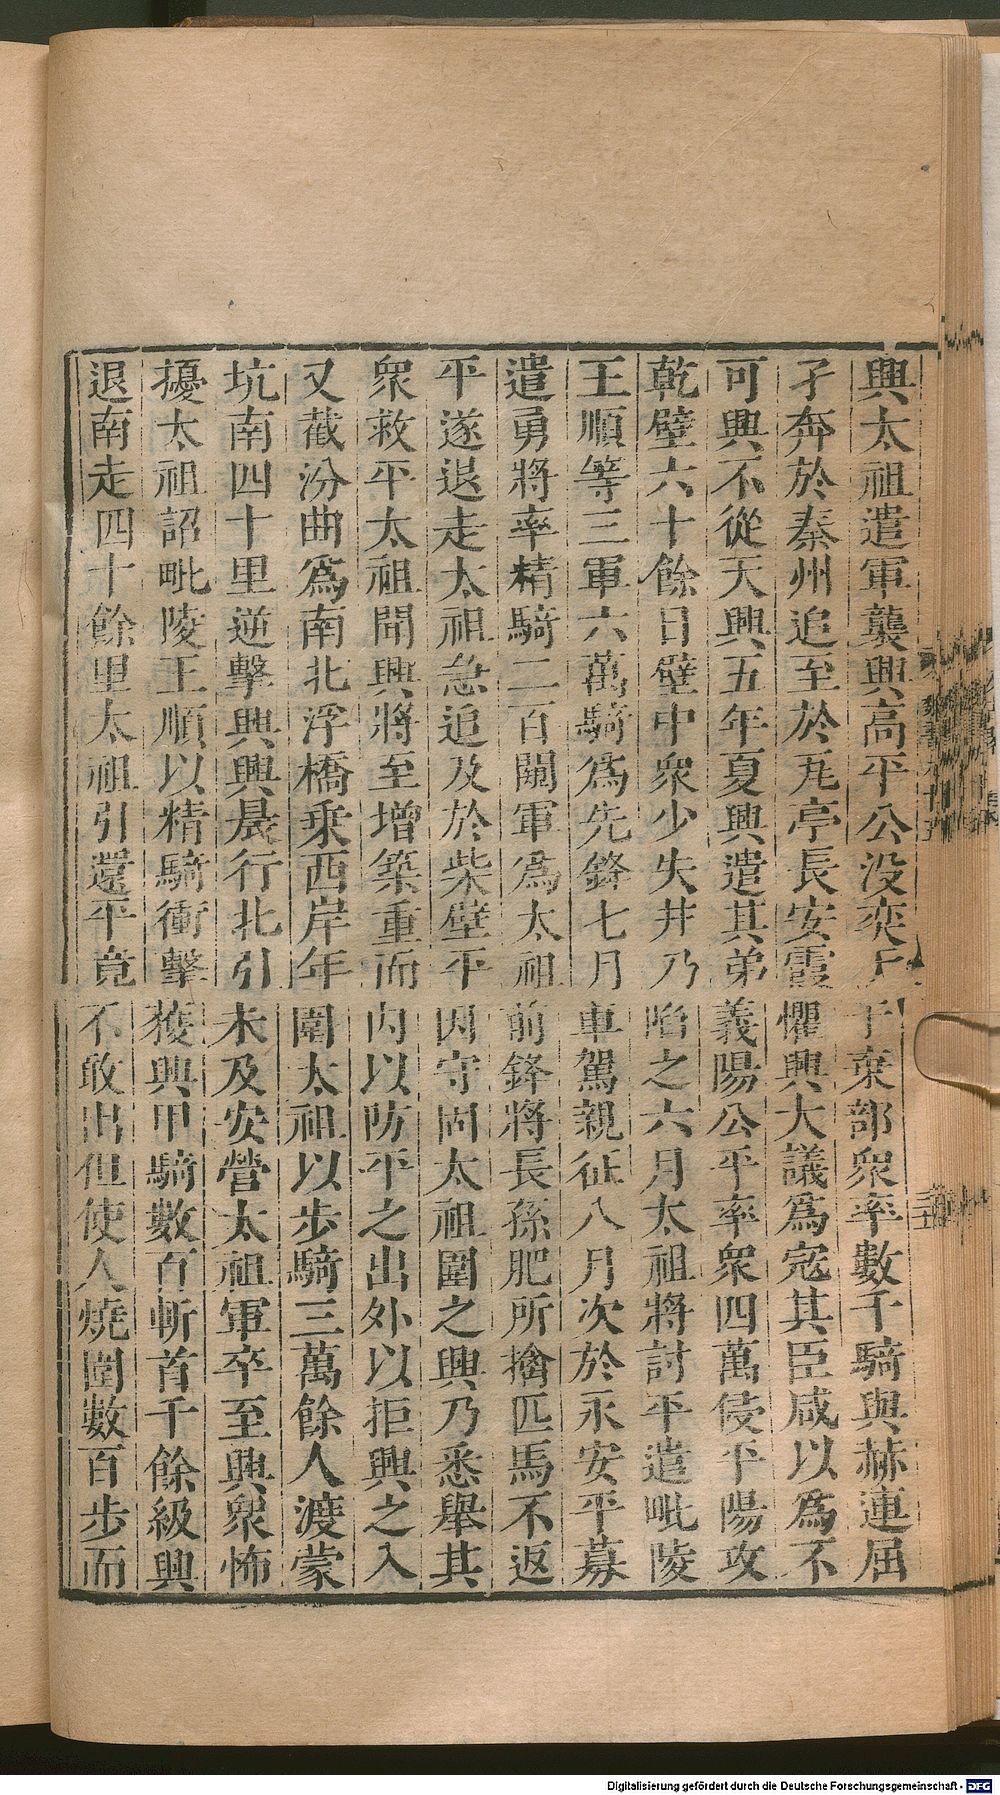 興太祖遣軍襲興高平公没奕于于棄部衆率數千騎與赫連屈
孑奔於秦州追至於瓦亭長安震懼興大議爲寇其臣咸以爲不
可興不從天興五年夏興遣其弟義陽公平率衆四萬侵平陽攻
乾壁六十餘日壁中衆少失井乃陷之六月太祖將討平遣毗陵
王順等三軍六萬騎爲先鋒七月車駕親征八月次於永安平募
遣勇將率精騎二百闚軍爲太祖前鋒將長孫肥所擒匹馬不返
平遂退走太祖急追及於柴壁平因守固太祖圍之興乃悉舉其
衆救平太祖聞興將至增築重而内以防平之出外以拒興之入
又截汾曲爲南北浮橋乗西岸年圍太祖以步騎三萬餘人渡蒙
坑南四十里逆擊興興晨行北引未及安營太祖軍卒至興衆怖
擾太祖詔毗陵王順以精騎衝擊獲興甲騎數百斬首千餘級興
退南走四十餘里太祖引還平竟不敢出但使人燒圍數百步而
Digitalisierung gefördert durch die Deutsche Forschungsgemeinschaft - DFG